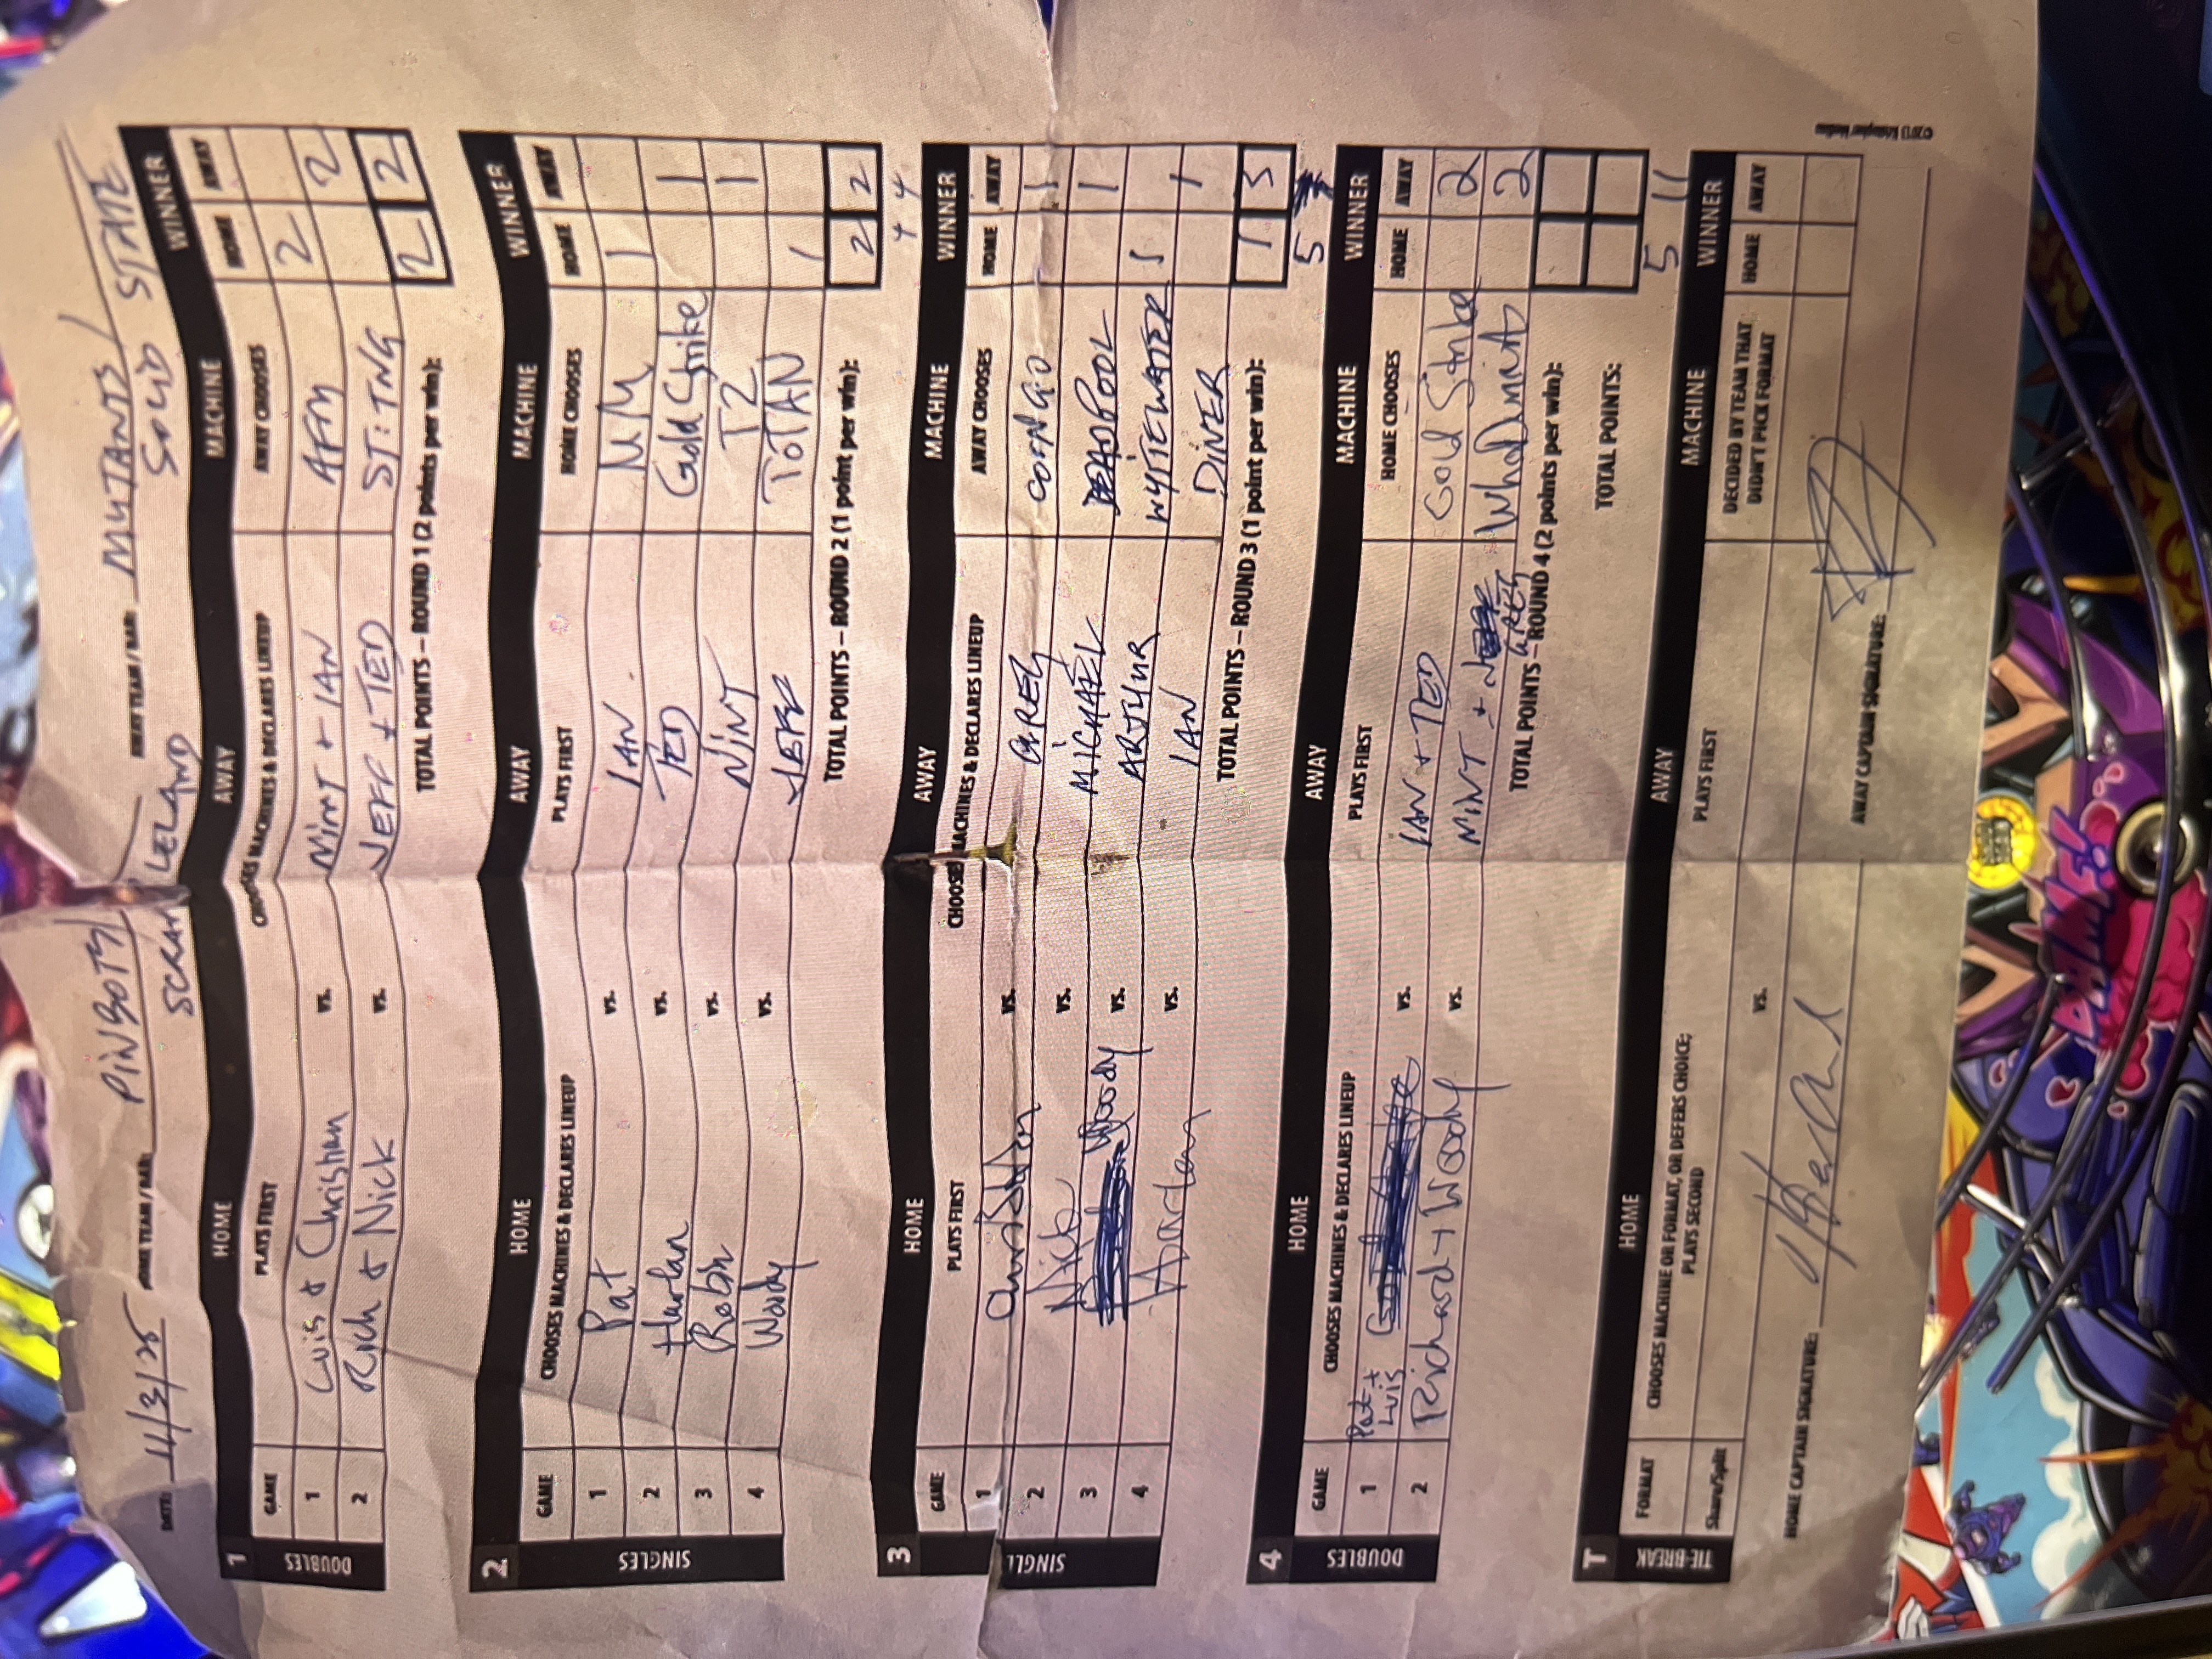 DATE: 11/3/25 HOME TEAM / BAR: PINBOTS / SCRAP LELAND AWAY TEAM / BAR: MUTANTS / SOLID STATE
1 HOME AWAY MACHINE WINNER
GAME PLAYS FIRST CHOOSES MACHINES & DECLARES LINEUP AWAY CHOOSES HOME AWAY
DOUBLES
1 Luis & Christian vs. MINT + IAN AFM 2
2 Rich & Nick vs. JEFF + TED ST:TNG 2
TOTAL POINTS – ROUND 1 (2 points per win): 2 2
2 HOME AWAY MACHINE WINNER
GAME CHOOSES MACHINES & DECLARES LINEUP PLAYS FIRST HOME CHOOSES HOME AWAY
SINGLES
1 Pat vs. IAN MM 1
2 Harlan vs. TED Gold Strike 1
3 Robin vs. MINT T2 1
4 Woody vs. JEFF TOTAN 1
TOTAL POINTS – ROUND 2 (1 point per win): 2 2
4 4
3 HOME AWAY MACHINE WINNER
GAME PLAYS FIRST CHOOSES MACHINES & DECLARES LINEUP AWAY CHOOSES HOME AWAY
SINGLES
1 Christian vs. GAREY CONGO 1
2 Nick vs. MICHAEL DEADPOOL 1
3 Woody vs. ARTHUR WHITEWATER 1
4 Harlan vs. IAN DINER 1
TOTAL POINTS – ROUND 3 (1 point per win): 1 3
5 7
4 HOME AWAY MACHINE WINNER
GAME CHOOSES MACHINES & DECLARES LINEUP PLAYS FIRST HOME CHOOSES HOME AWAY
DOUBLES
1 Pat + Luis vs. IAN + TED Gold Strike 2
2 Richard + Woody vs. MINT + GAREY WhoDunnit 2
TOTAL POINTS – ROUND 4 (2 points per win):
TOTAL POINTS:
5 11
T HOME AWAY MACHINE WINNER
TIE-BREAK
FORMAT CHOOSES MACHINE OR FORMAT, OR DEFERS CHOICE; PLAYS SECOND PLAYS FIRST DECIDED BY TEAM THAT DIDN'T PICK FORMAT HOME AWAY
Share/Split vs.
HOME CAPTAIN SIGNATURE: AWAY CAPTAIN SIGNATURE:
©2013 Kristopher Medina
BLAME!